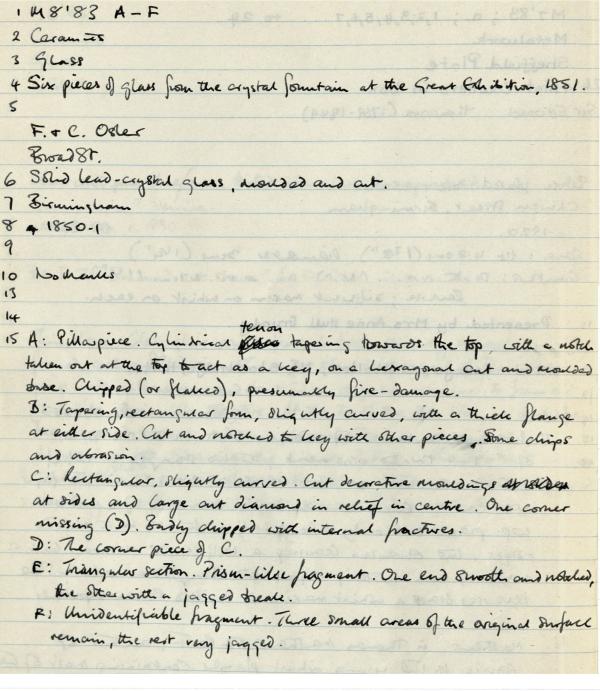 1 M8'83 A-F
2 Ceramics
3 Glass
4 Six pieces of glass from the crystal fountain at the Great Exhibition, 1851.
5
F. & C. Osler
Broad St.
6 Solid lead-crystal glass, moulded and cut.
7 Birmingham
8 1850-1
9
10 No marks
13
14
15 A: Pillar piece. Cylindrical tenon tapering towards the top, with a notch
taken out at the top to act as a key, on a hexagonal cut and moulded
base. Chipped (or flaked), presumably fire-damage.
B: Tapering, rectangular form, slightly curved, with a thick flange
at either side. Cut and notched to key with other pieces. Some chips
and abrasion.
C: Rectangular, slightly curved. Cut decorative mouldings
at sides and large cut diamond in relief in centre. One corner
missing (D). Badly chipped with internal fractures.
D: The corner piece of C.
E: Triangular section. Prism-like fragment. One end smooth and notched,
the other with a jagged break.
F: Unidentifiable fragment. Three small areas of the original surface
remain, the rest very jagged.